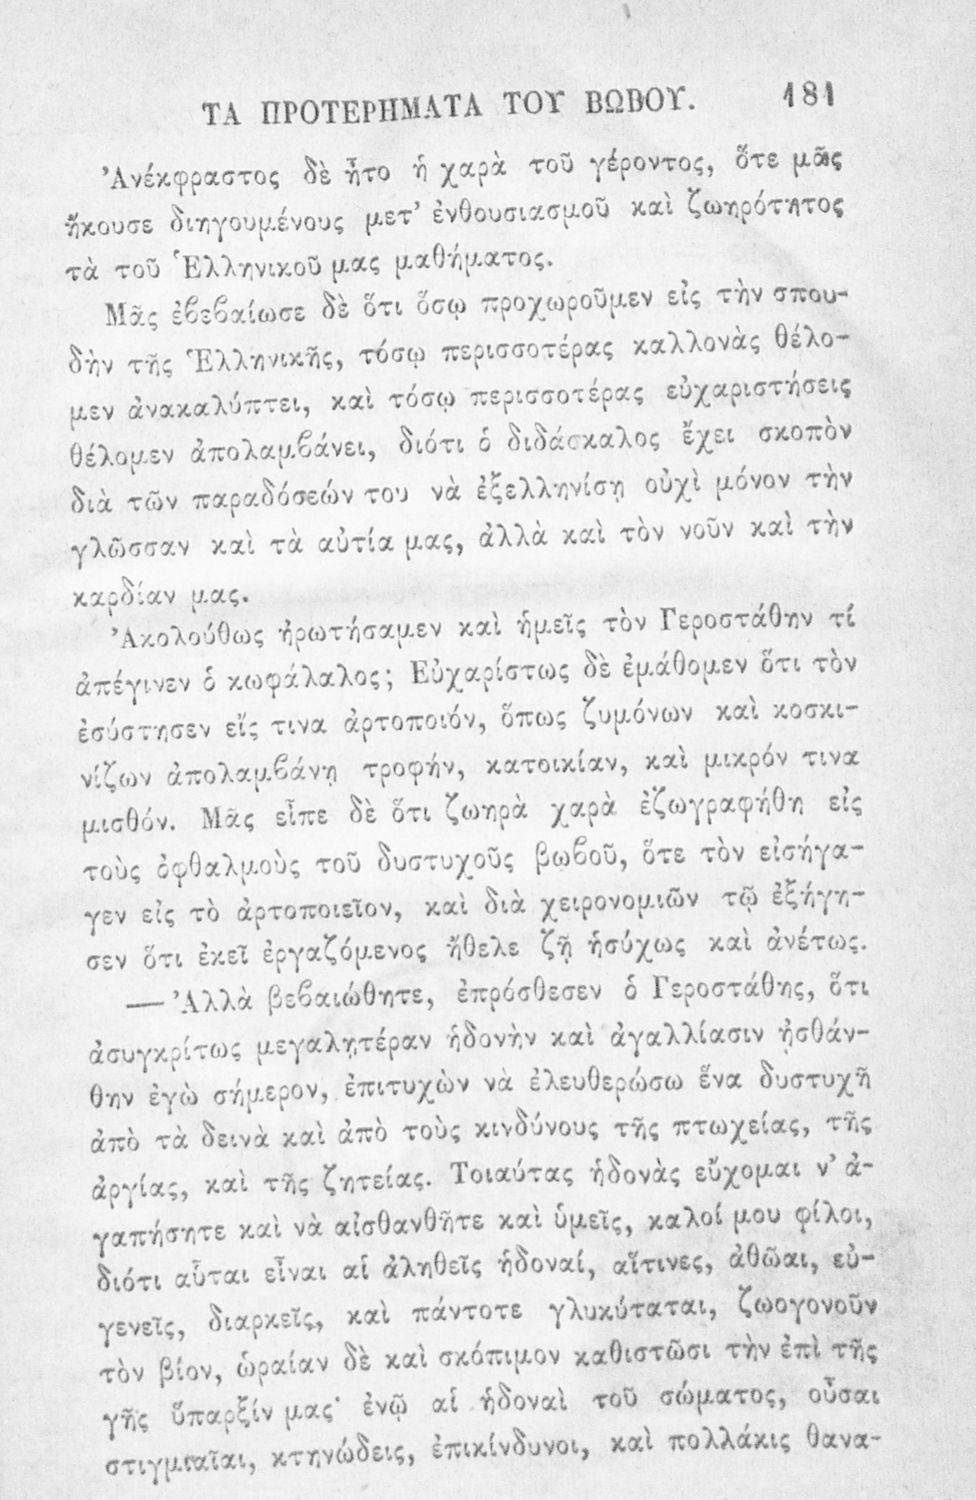 ΤΑ ΠΡΟΤΕΡΗΜΑΤΑ ΤΟΥ ΒΩΒΟΥ. 181
Ἀνέκφραστος δὲ ἦτο ἡ χαρὰ τοῦ γέροντος, ὅτε μᾶς
ἤκουσε διηγουμένους μετ’ ἐνθουσιασμοῦ καὶ ζωηρότητος
τὰ τοῦ Ἑλληνικοῦ μας μαθήματος.
Μᾶς ἐβεβαίωσε δὲ ὅτι ὅσῳ προχωροῦμεν εἰς τὴν σπου-
δὴν τῆς Ἑλληνικῆς, τόσῳ περισσοτέρας καλλονὰς θέλο-
μεν ἀνακαλύπτει, καὶ τόσῳ περισσοτέρας εὐχαριστήσεις
θέλομεν ἀπολαμβάνει, διότι ὁ διδάσκαλος ἔχει σκοπὸν
διὰ τῶν παραδόσεών του νὰ ἐξελληνίσῃ οὐχὶ μόνον τὴν
γλῶσσαν καὶ τὰ αὐτία μας, ἀλλὰ καὶ τὸν νοῦν καὶ τὴν
καρδίαν μας.
Ἀκολούθως ἠρωτήσαμεν καὶ ἡμεῖς τὸν Γεροστάθην τί
ἀπέγινεν ὁ κωφάλαλος; Εὐχαρίστως δὲ ἐμάθομεν ὅτι τὸν
ἐσύστησεν εἴς τινα ἀρτοποιόν, ὅπως ζυμόνων καὶ κοσκι-
νίζων ἀπολαμβάνῃ τροφήν, κατοικίαν, καὶ μικρόν τινα
μισθόν. Μᾶς εἶπε δὲ ὅτι ζωηρὰ χαρὰ ἐζωγραφήθη εἰς
τοὺς ὀφθαλμοὺς τοῦ δυστυχοῦς βωβοῦ, ὅτε τὸν εἰσήγα-
γεν εἰς τὸ ἀρτοποιεῖον, καὶ διὰ χειρονομιῶν τῷ ἐξήγη-
σεν ὅτι ἐκεῖ ἐργαζόμενος ἤθελε ζῇ ἡσύχως καὶ ἀνέτως.
— Ἀλλὰ βεβαιώθητε, ἐπρόσθεσεν ὁ Γεροστάθης, ὅτι
ἀσυγκρίτως μεγαλητέραν ἡδονὴν καὶ ἀγαλλίασιν ᾐσθάν-
θην ἐγὼ σήμερον, ἐπιτυχὼν νὰ ἐλευθερώσω ἕνα δυστυχῆ
ἀπὸ τὰ δεινὰ καὶ ἀπὸ τοὺς κινδύνους τῆς πτωχείας, τῆς
ἀργίας, καὶ τῆς ζητείας. Τοιαύτας ἡδονὰς εὔχομαι ν’ ἀ-
γαπήσητε καὶ νὰ αἰσθανθῆτε καὶ ὑμεῖς, καλοί μου φίλοι,
διότι αὗται εἶναι αἱ ἀληθεῖς ἡδοναί, αἵτινες, ἀθῶαι, εὐ-
γενεῖς, διαρκεῖς, καὶ πάντοτε γλυκύταται, ζωογονοῦν
τὸν βίον, ὡραίαν δὲ καὶ σκόπιμον καθιστῶσι τὴν ἐπὶ τῆς
γῆς ὕπαρξίν μας· ἐνῷ αἱ ἡδοναὶ τοῦ σώματος, οὖσαι
στιγμιαῖαι, κτηνώδεις, ἐπικίνδυνοι, καὶ πολλάκις θανα-